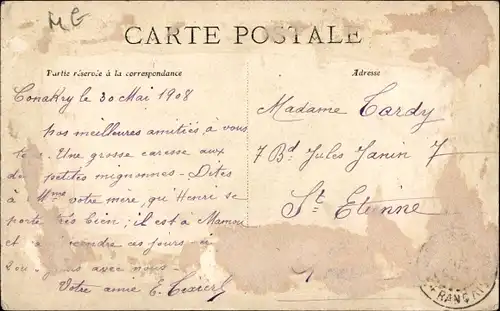 MG
CARTE POSTALE
Partie réservée à la correspondance
Adresse
Conakry le 30 Mai 1908
Nos meilleures amitiés à vous
Une grosse caresse aux
petites mignonnes - Dites
à Mme votre mère, qu'Henri se
porte très bien; il est à Mamou
et à ces jours-ci
avec nous.
Votre amie E.
Madame Tardy
7 Bd Jules Janin 7
St Etienne
FRANÇAI